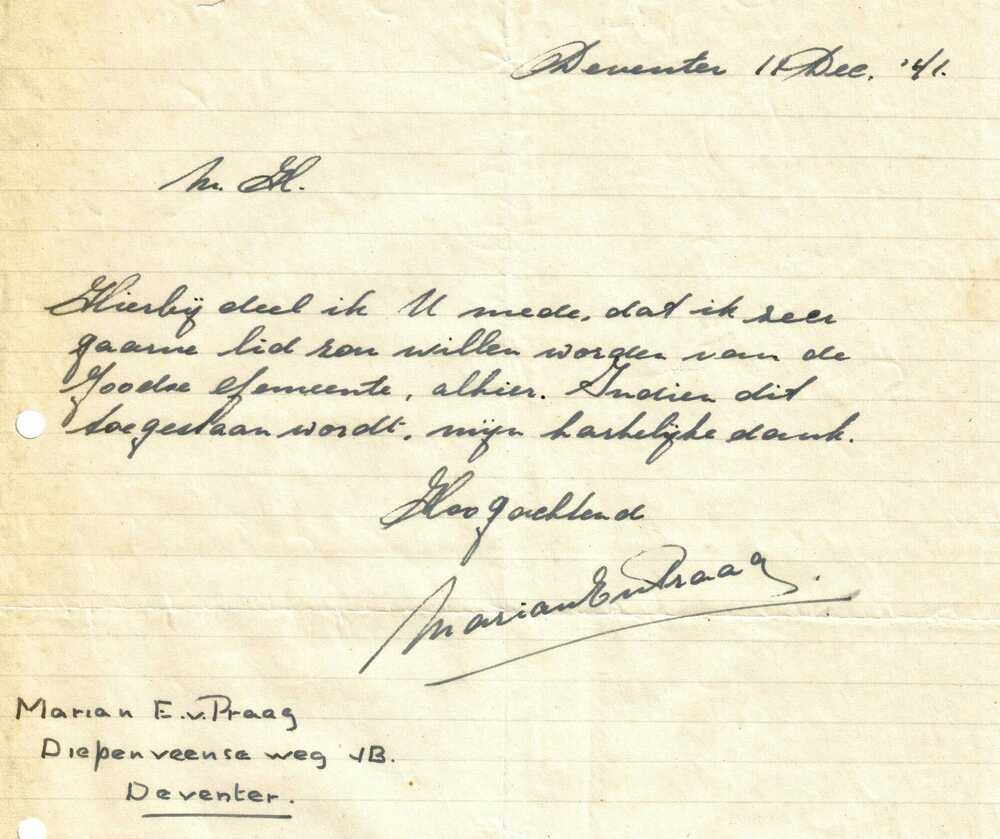 Deventer 11 Dec. '41.
M. H.
Hierbij deel ik U mede, dat ik zeer
gaarne lid zou willen worden van de
Joodse Gemeente, alhier. Indien dit
toegestaan wordt, mijn hartelijke dank.
Hoogachtend
Marian E v Praag.
Marian E. v. Praag
Diepenveense weg 1B.
Deventer.